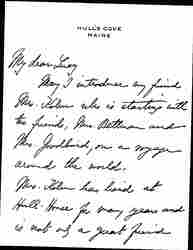 HULL'S COVE
MAINE
My dear Lucy
May I introduce my friend
Mrs. who is starting with
her friends, Mrs. and
Mrs. , on a voyage
around the world.
Mrs. has lived at
Hull House for many years and
is not only a great friend